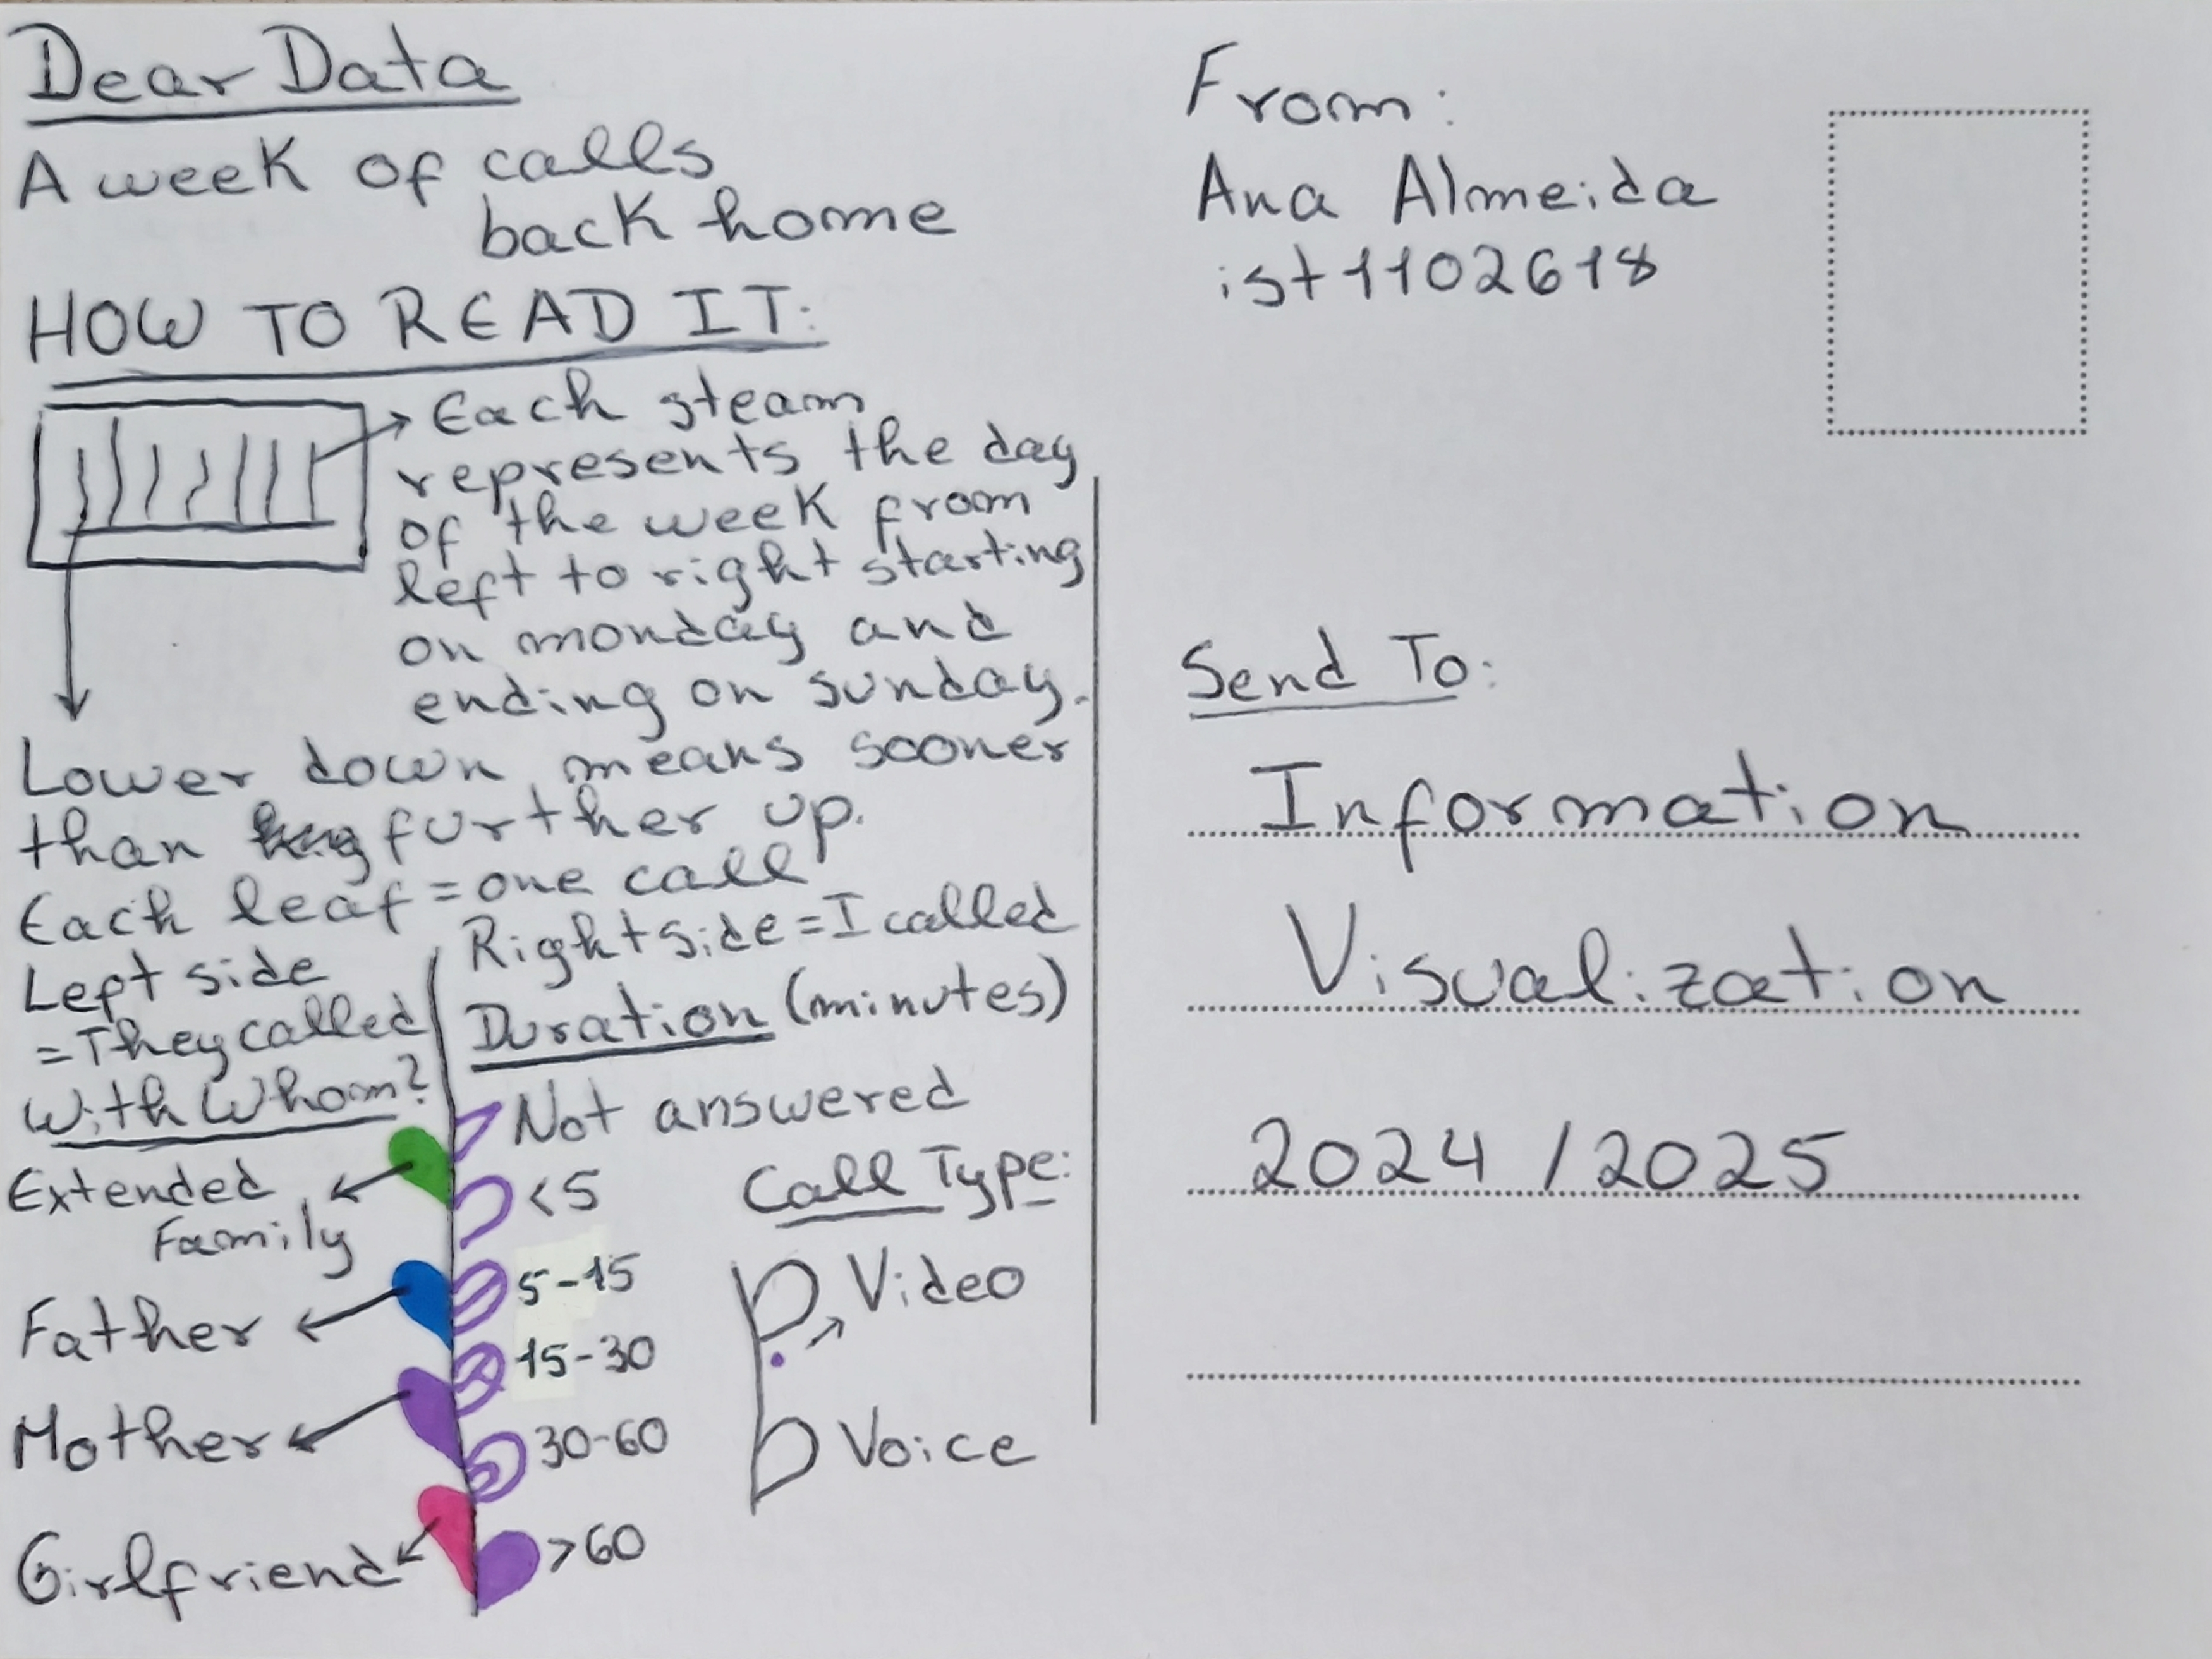 Dear Data
A week of calls
back home
HOW TO READ IT:
Each steam
represents the day
of the week from
left to right starting
on monday and
ending on sunday.
Lower down means sooner
than further up.
Each leaf = one call
Left side
= They called
Right side = I called
With Whom?
Extended
Family
Father
Mother
Girlfriend
Duration (minutes)
Not answered
<5
5-15
15-30
30-60
>60
Call Type:
Video
Voice
From:
Ana Almeida
ist1102618
Send To:
Information
Visualization
2024/2025